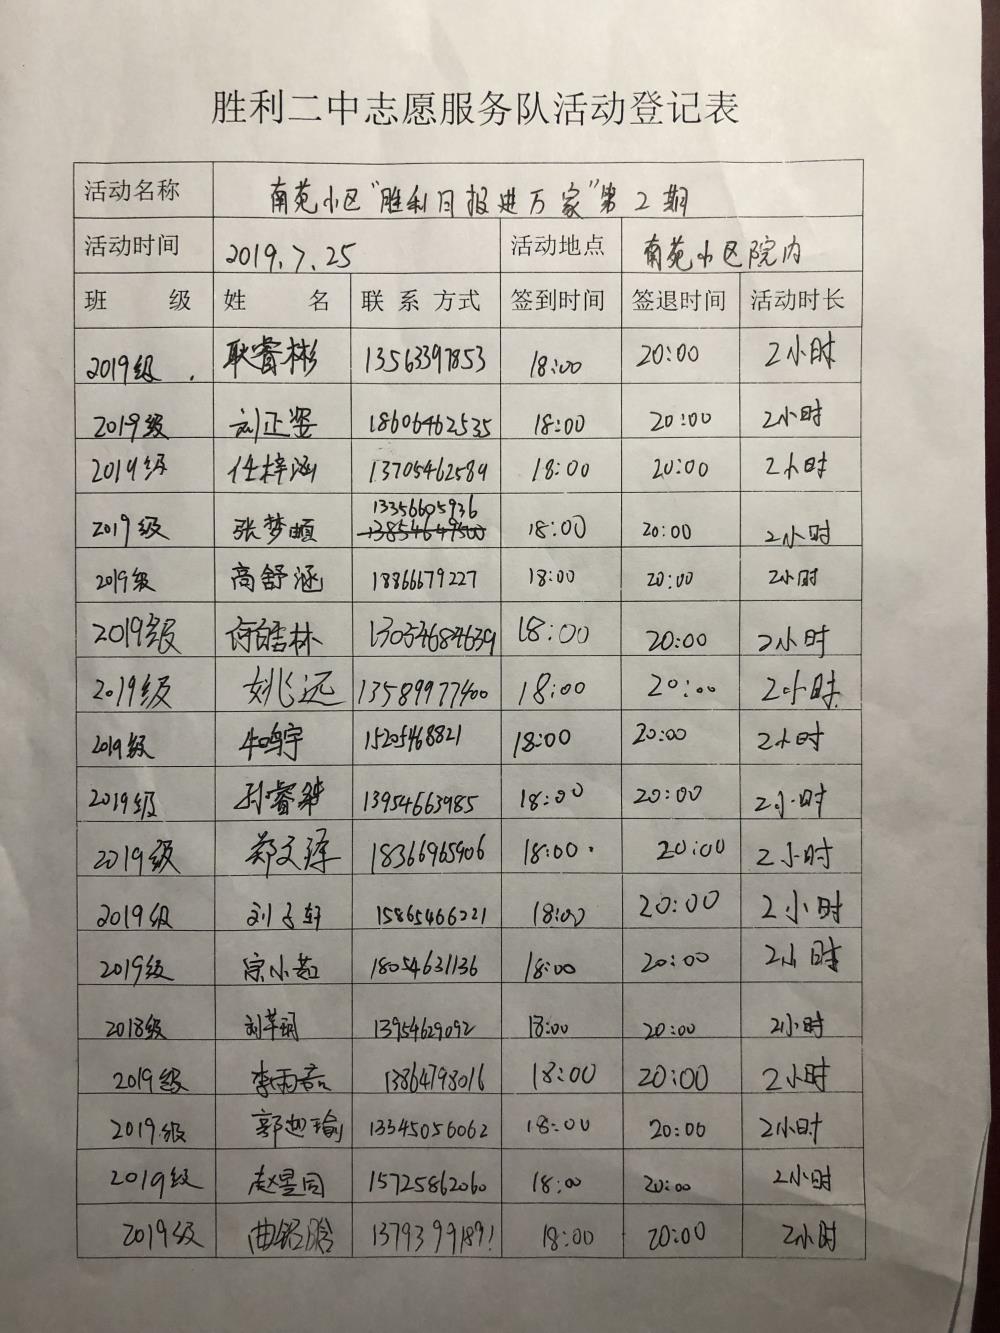 胜利二中志愿服务队活动登记表
活动名称 南苑小区"胜利日报进万家"第2期
活动时间 2019.7.25 活动地点 南苑小区院内
班级 姓名 联系方式 签到时间 签退时间 活动时长
2019级 耿睿彬 13563397853 18:00 20:00 2小时
2019级 刘正姿 18606462535 18:00 20:00 2小时
2019级 任梓涵 13705462589 18:00 20:00 2小时
13356605936
2019级 张梦頔 13854649500 18:00 20:00 2小时
2019级 高舒涵 18866679227 18:00 20:00 2小时
2019级 18:00 20:00 2小时
2019级 姚远 13589977400 18:00 20:00 2小时
2019级 牛鸣宇 15205468821 18:00 20:00 2小时
2019级 孙睿 13954663985 18:00 20:00 2小时
2019级 郑文 18366965906 18:00 20:00 2小时
2019级 刘子轩 15865466221 18:00 20:00 2小时
2019级 宗小茹 18054631136 18:00 20:00 2小时
2018级 刘芊 13954629092 18:00 20:00 2小时
2019级 李雨 13864798016 18:00 20:00 2小时
2019级 郭迦瑜 13345056062 18:00 20:00 2小时
2019级 赵昱同 15725862060 18:00 20:00 2小时
2019级 曲铭晗 13793991891 18:00 20:00 2小时